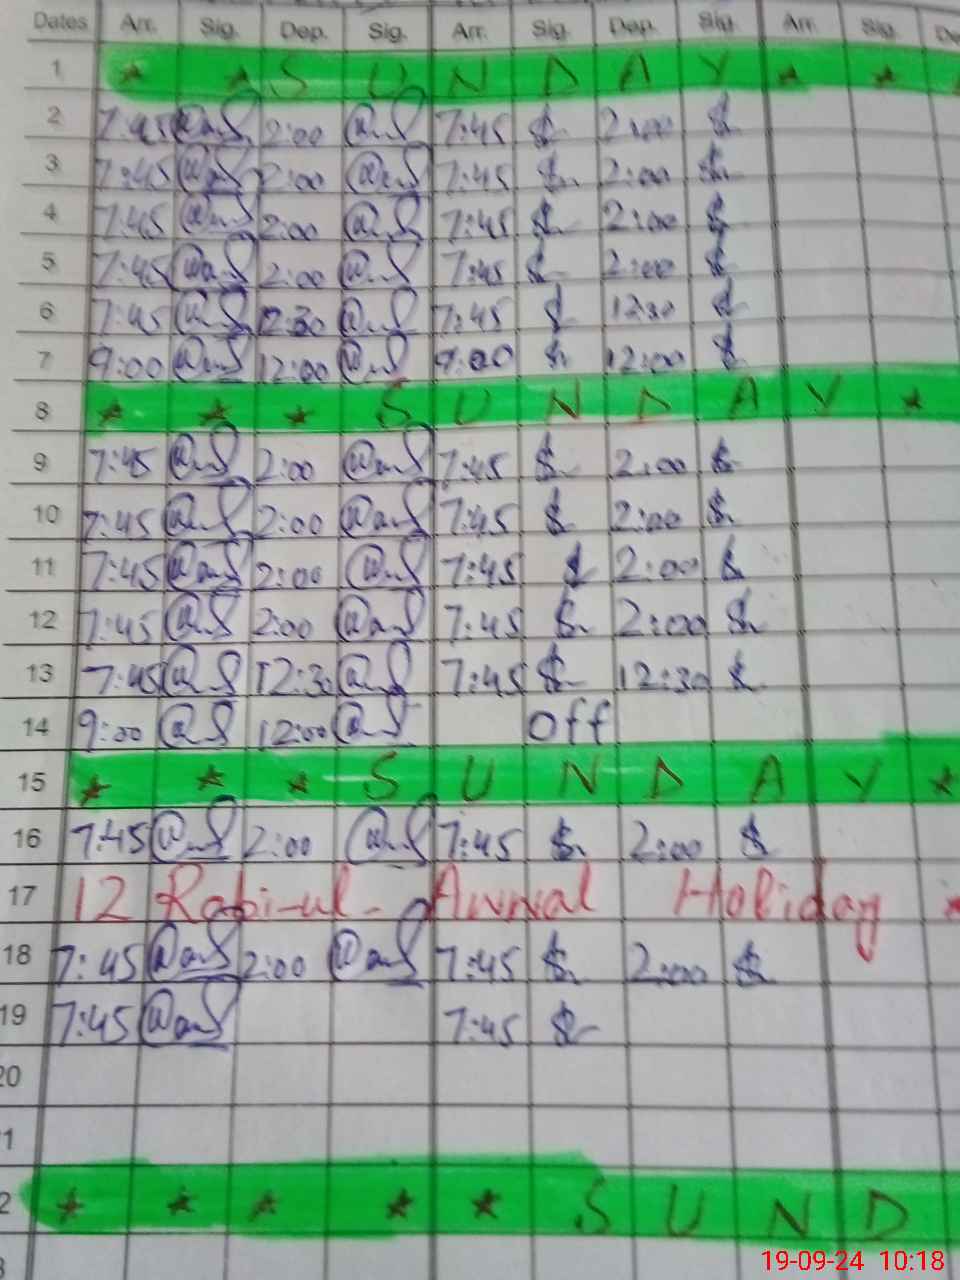 Dates Arr. Sig. Dep. Sig. Arr. Sig. Dep. Sig. Arr. Sig. De
1 ★ ★ S U N D A Y ★ ★
2 7:45 2:00 7:45 2:00
3 7:45 2:00 7:45 2:00
4 7:45 2:00 7:45 2:00
5 7:45 2:00 7:45 2:00
6 7:45 12:30 7:45 12:30
7 9:00 12:00 9:00 12:00
8 ★ ★ ★ S U N D A Y ★
9 7:45 2:00 7:45 2:00
10 7:45 2:00 7:45 2:00
11 7:45 2:00 7:45 2:00
12 7:45 2:00 7:45 2:00
13 7:45 12:30 7:45 12:30
14 9:00 12:00 Off
15 ★ ★ ★ S U N D A Y ★
16 7:45 2:00 7:45 2:00
17 12 Rabi-ul-Awwal Holiday ★
18 7:45 2:00 7:45 2:00
19 7:45 7:45
20
1
2 ★ ★ ★ ★ ★ S U N D
3
19-09-24 10:18